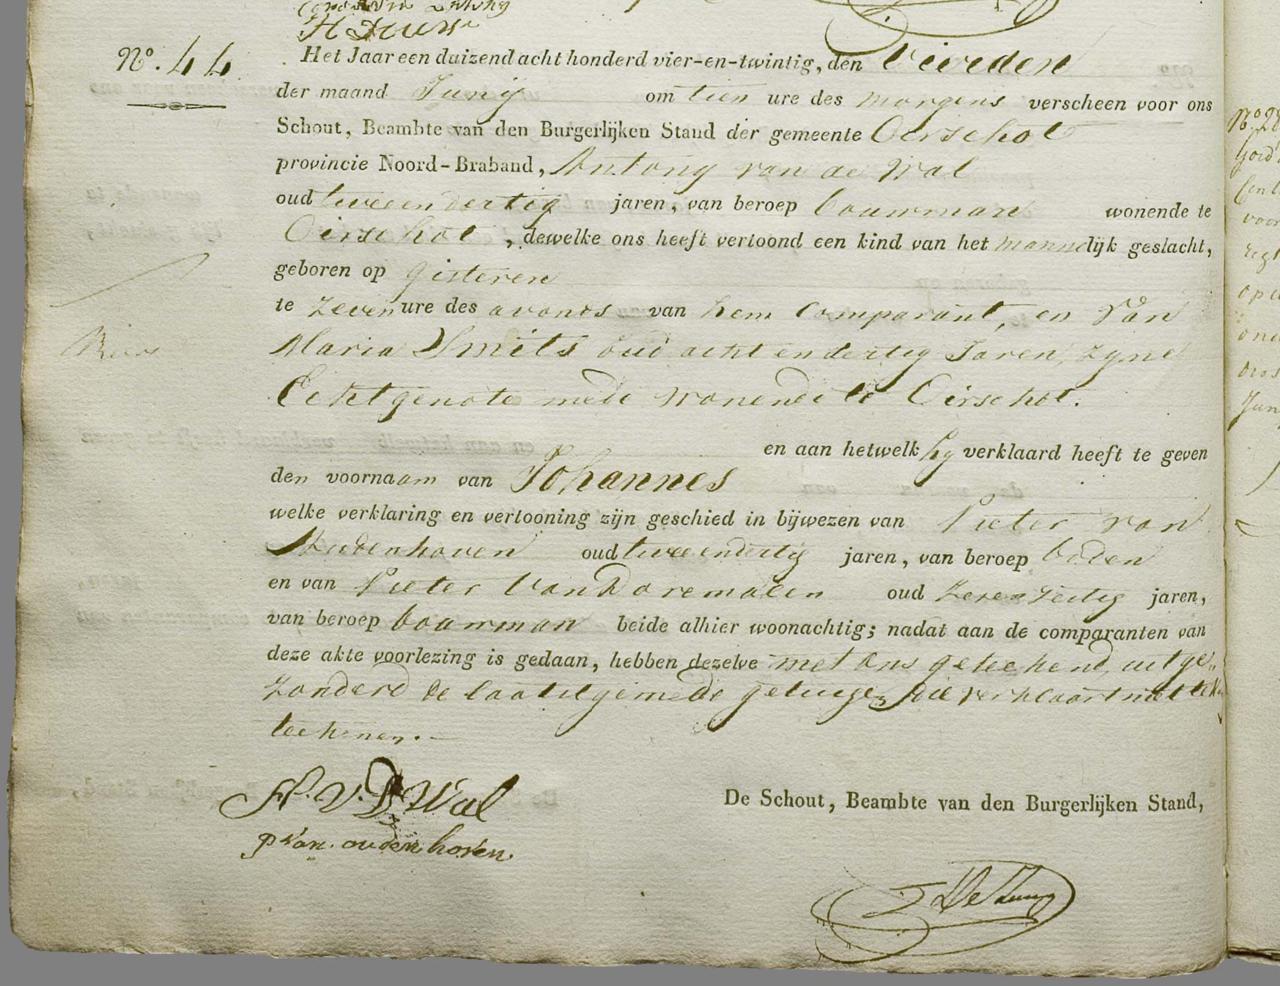 H
No. 44
Het Jaar een duizend acht honderd vier-en-twintig, den Vierden
der maand Junij om tien ure des morgens verscheen voor ons
Schout, Beambte van den Burgerlijken Stand der gemeente Oirschot
provincie Noord-Braband, Antony van de Wal
oud twee en dertig jaren, van beroep bouwman wonende te
Oirschot, dewelke ons heeft vertoond een kind van het mannelijk geslacht,
geboren op gisteren
te zeven ure des avonds van hem Comparant, en van
Maria Smits oud acht en dertig Jaren, zyne
Echtgenote mede wonende te Oirschot.
en aan hetwelk hy verklaard heeft te geven
den voornaam van Johannes
welke verklaring en vertooning zijn geschied in bijwezen van Pieter van
Audenhoven oud twee en dertig jaren, van beroep boden
en van Pieter van Doremalen oud zeven jaren,
van beroep bouwman beide alhier woonachtig; nadat aan de comparanten van
deze akte voorlezing is gedaan, hebben dezelve met ons getekend, uitge„
zonderd de laatstgemelde getuige, die verklaart niet te
teekenen.
A. V. D. Wal
p van. oudenhoven.
De Schout, Beambte van den Burgerlijken Stand,